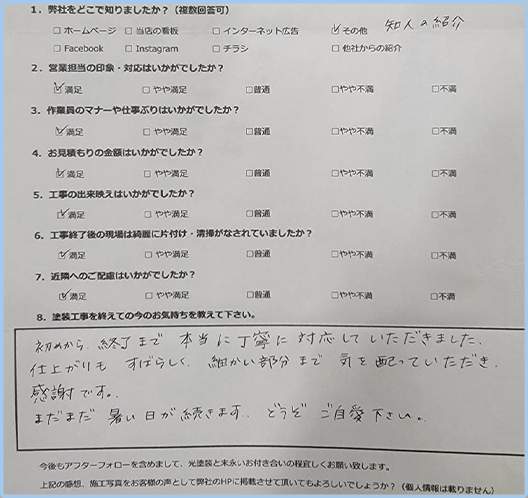 1. 弊社をどこで知りましたか?(複数回答可)
□ ホームページ □ 当店の看板 □ インターネット広告 ☑ その他 知人の紹介
□ Facebook □ Instagram □ チラシ □ 他社からの紹介
2. 営業担当の印象・対応はいかがでしたか?
☑ 満足 □ やや満足 □ 普通 □ やや不満 □ 不満
3. 作業員のマナーや仕事ぶりはいかがでしたか?
☑ 満足 □ やや満足 □ 普通 □ やや不満 □ 不満
4. お見積もりの金額はいかがでしたか?
☑ 満足 □ やや満足 □ 普通 □ やや不満 □ 不満
5. 工事の出来映えはいかがでしたか?
☑ 満足 □ やや満足 □ 普通 □ やや不満 □ 不満
6. 工事終了後の現場は綺麗に片付け・清掃がなされていましたか?
☑ 満足 □ やや満足 □ 普通 □ やや不満 □ 不満
7. 近隣へのご配慮はいかがでしたか?
☑ 満足 □ やや満足 □ 普通 □ やや不満 □ 不満
8. 塗装工事を終えての今のお気持ちを教えて下さい。
初めから、終了まで 本当に丁寧に対応していただきました。
仕上がりも すばらしく、細かい部分まで 気を配っていただき、
感謝です。
まだまだ 暑い日が続きます。どうぞ ご自愛下さい。
今後もアフターフォローを含めまして、光塗装と末永いお付き合いの程宜しくお願い致します。
上記の感想、施工写真をお客様の声として弊社のHPに掲載させて頂いてもよろしいでしょうか?(個人情報は載りません)